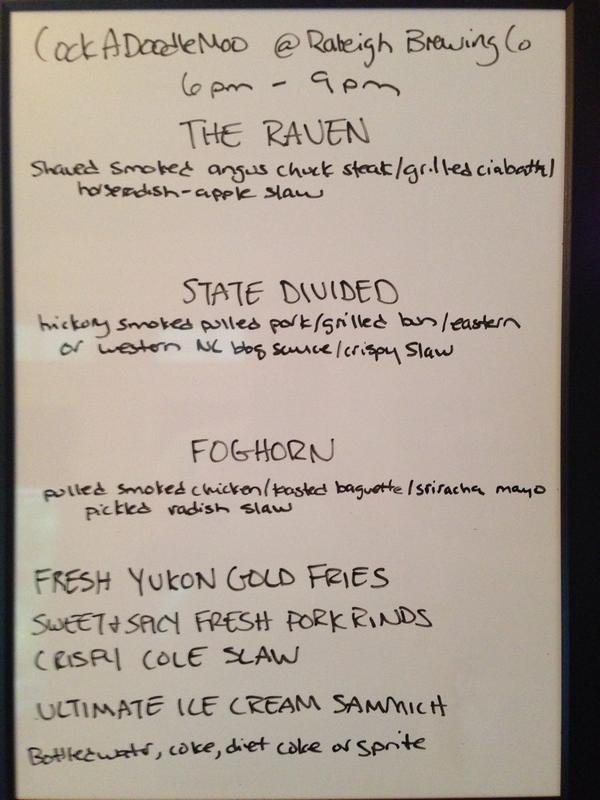 CockADoodleMoo @ Raleigh Brewing Co
6pm - 9pm
THE RAVEN
Shaved smoked angus chuck steak/grilled ciabatta/
horseradish-apple slaw
STATE DIVIDED
hickory smoked pulled pork/grilled bun/eastern
or western NC bbq sauce/crispy slaw
FOGHORN
pulled smoked chicken/toasted baguette/sriracha mayo
pickled radish slaw
FRESH YUKON GOLD FRIES
SWEET & SPICY FRESH PORK RINDS
CRISPY COLE SLAW
ULTIMATE ICE CREAM SAMMICH
Bottled water, coke, diet coke or sprite